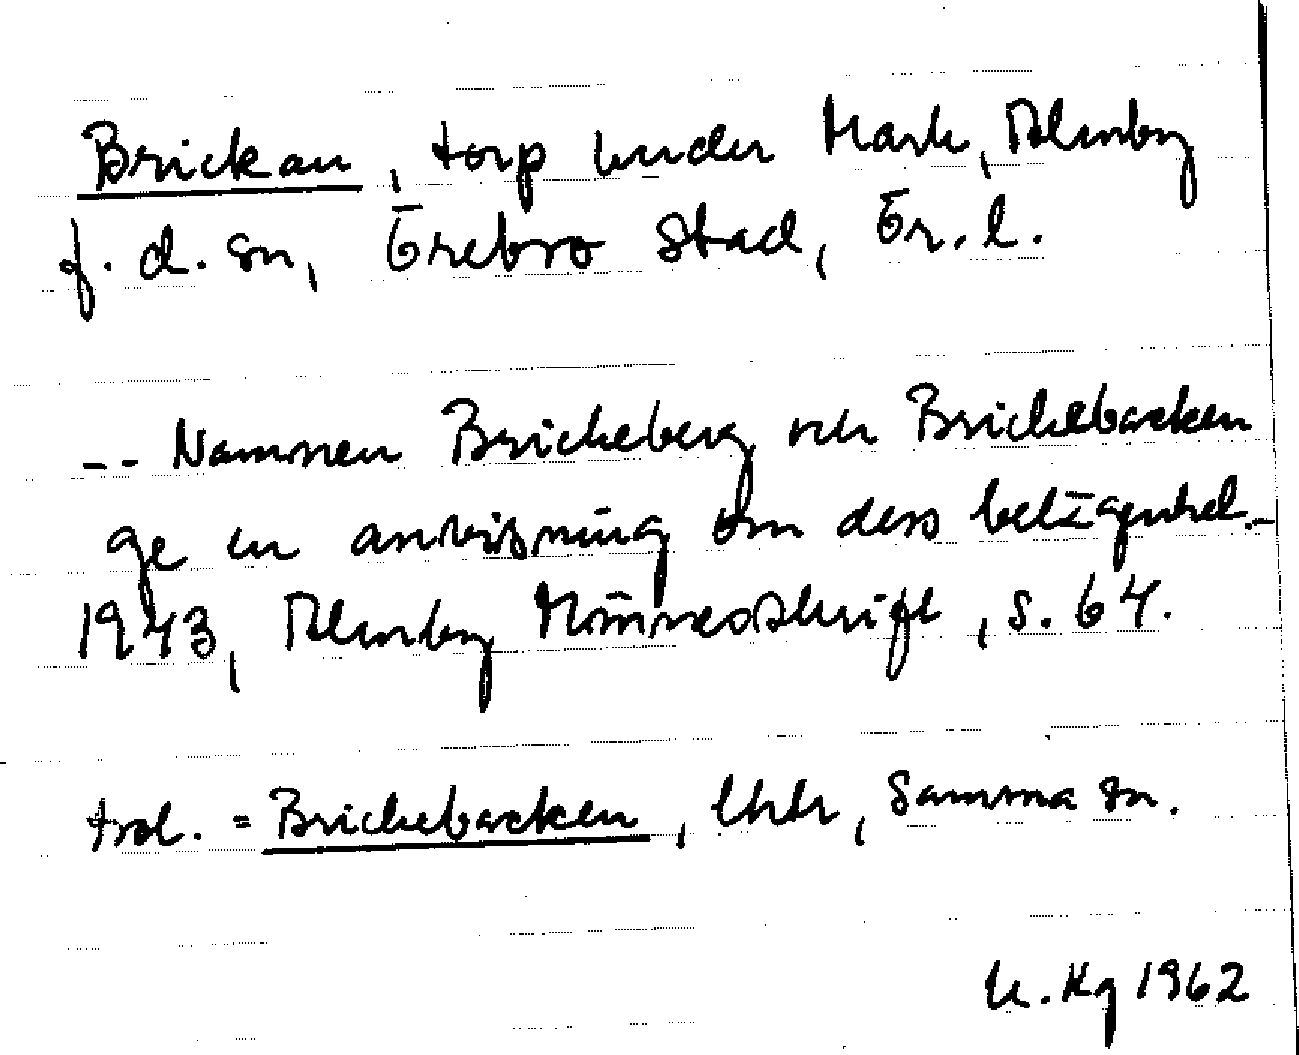 Brickan, torp under Mark, Almby
f.d. sn, Örebro stad, Ör. l.
-- Namnen Brickeberg och Brickebacken
ge en anvisning om dess belägenhet.–
1943, Almby Minnesskrift, s. 64.
trol. = Brickebacken, lhh, samma sn.
U. Hg 1962